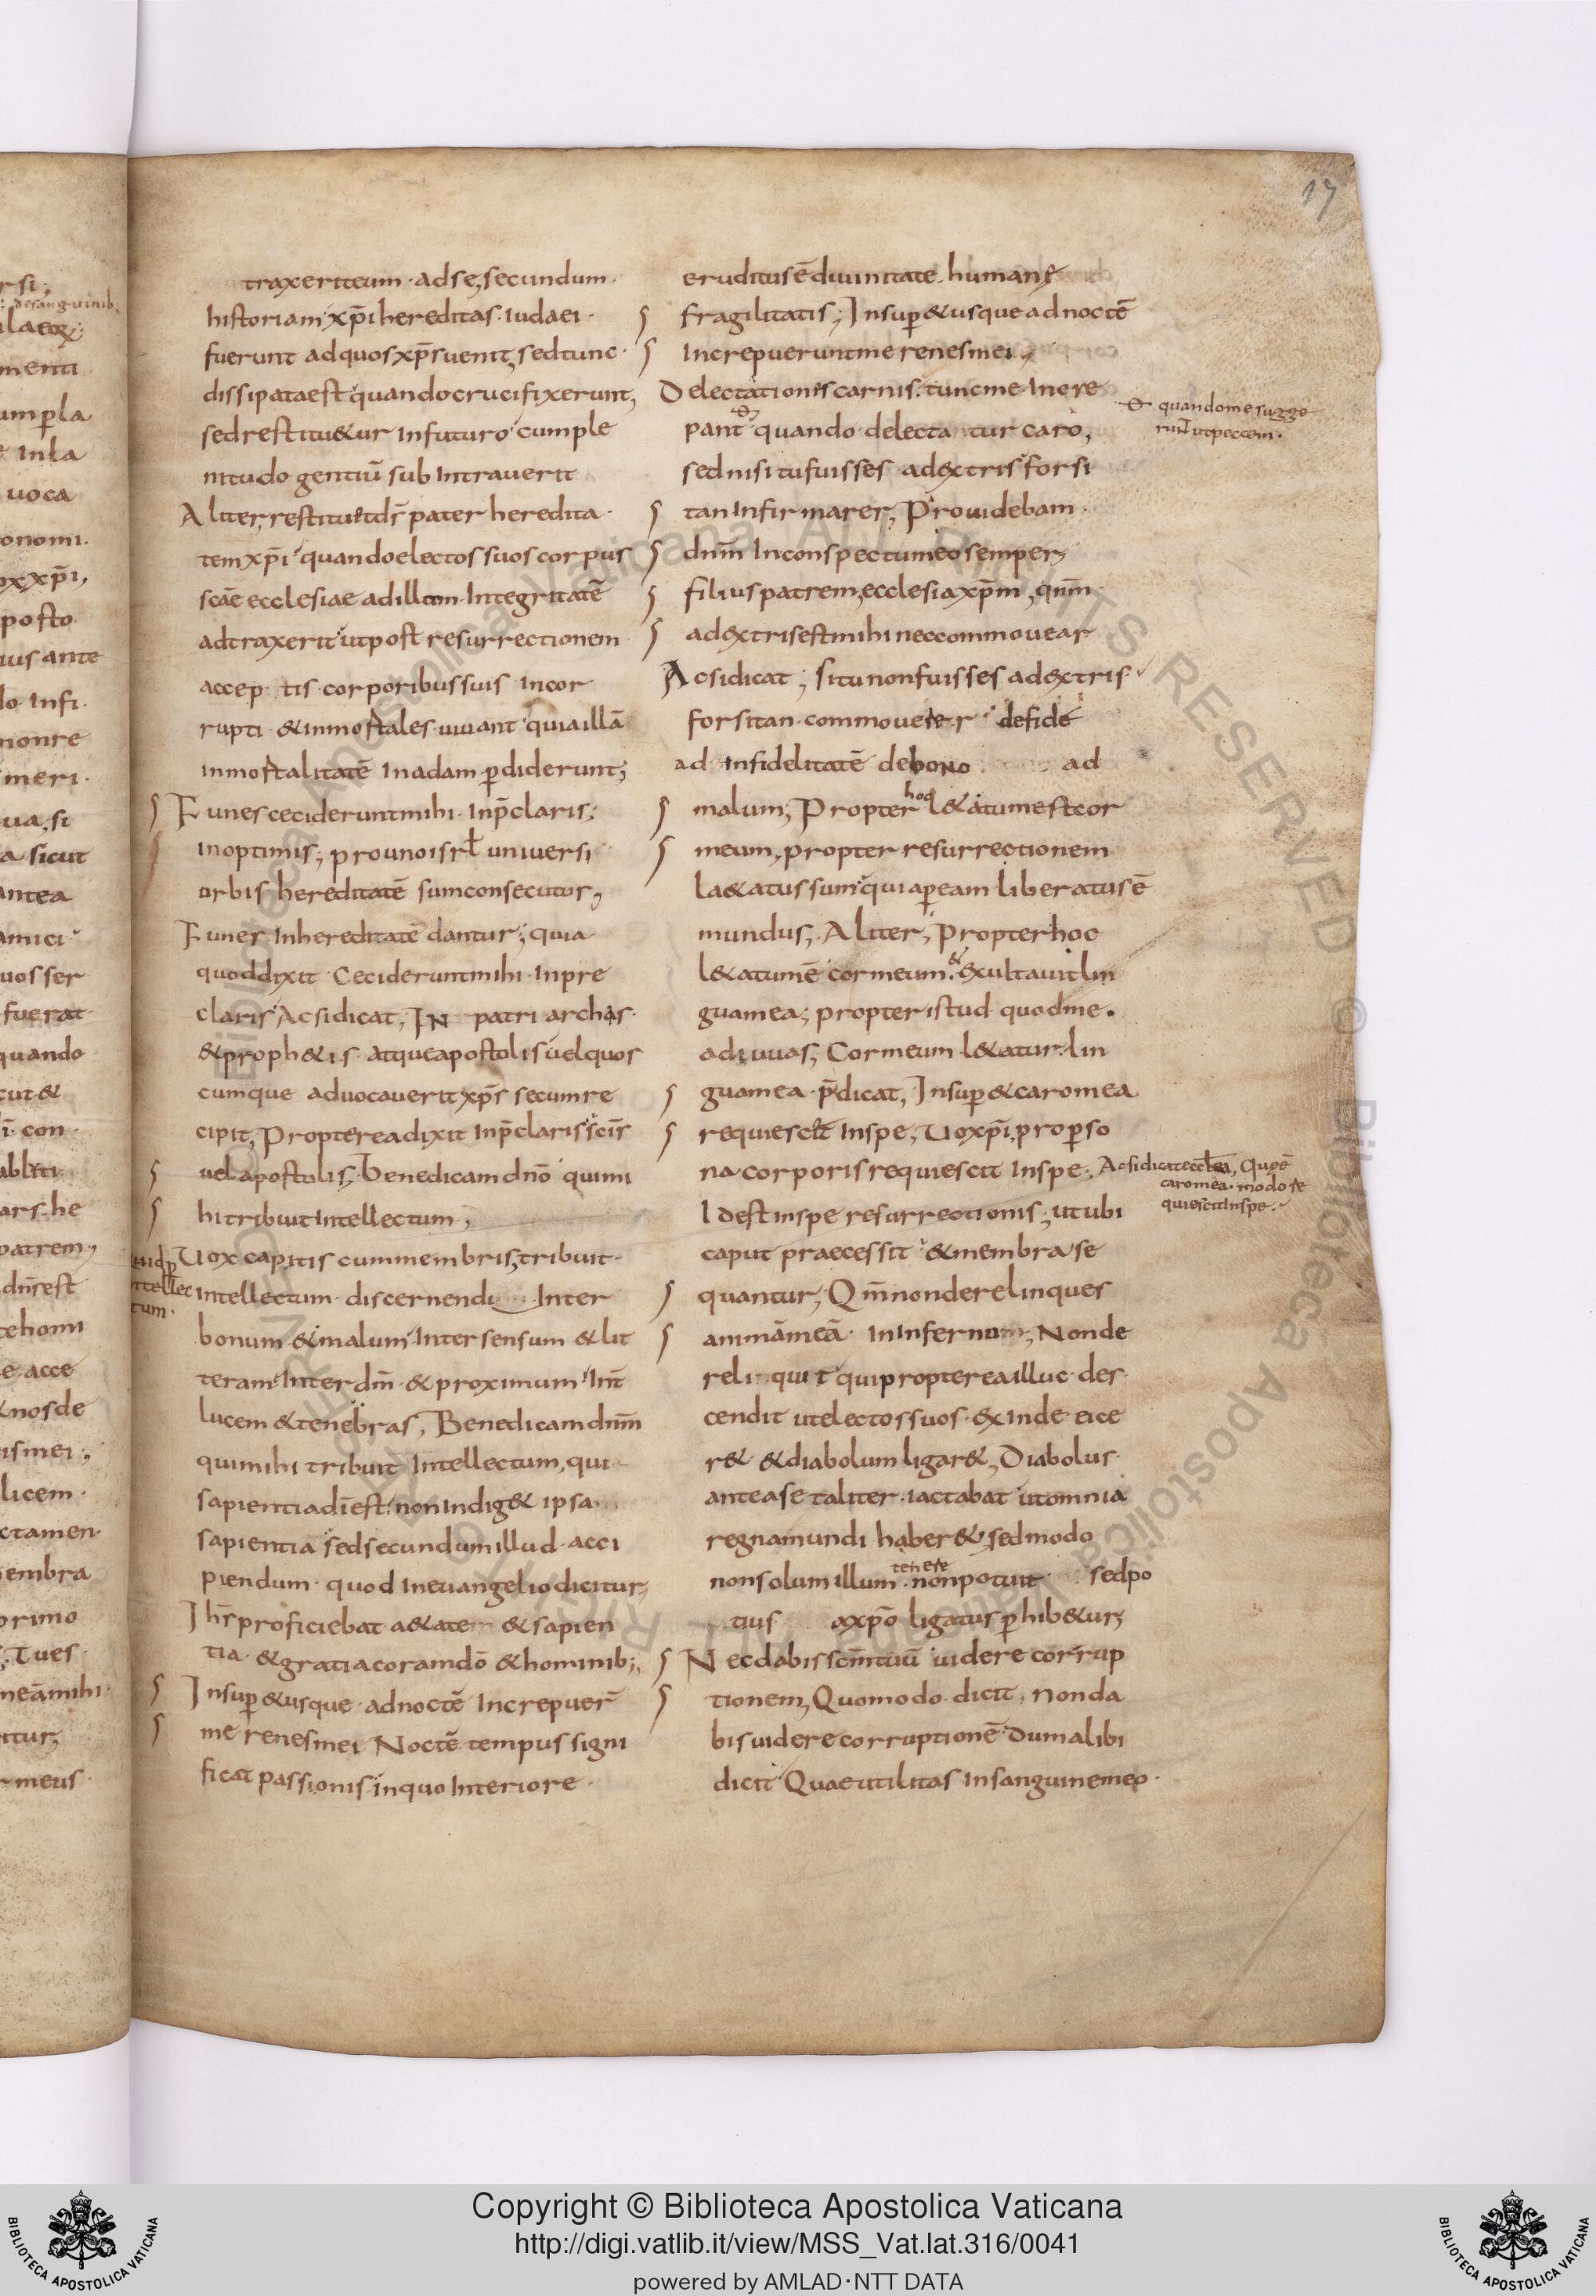 17
traxerit eum · ad se, secundum ·
historiam xp̄i hereditas · iudaei ·
fuerunt ad quos xp̄s uenit, sed tunc ·
dissipata est quando crucifixerunt,
sed restitu&ur In futuro cumple
nitudo gentiū sub Intrauerit
Aliter, restituit dr̄ pater heredita ·
tem xp̄i quando electos suos corpus
scāe ecclesiae ad illam · Integritatē
adtraxerit ut post resurrectionem
accep tis · corporibus suis Incor
rupti · & inmortales uiuant quia illā
inmortalitatē In adam · perdiderunt;
Funes ceciderunt mihi · Inp̄claris;
in optimis; pro uno isrł uniuersi
orbis hereditatē sum consecutus,
Funes · In hereditatē dantur; quia
quod dixit · Ceciderunt mihi · Inpre
claris Ac si dicat, IN patriarchas ·
& proph&is · atque apostolis uel quos
cumque aduocauerit xp̄s secum re
cipit, Propterea dixit Inp̄claris sc̄is
uel apostolis, benedicam dnō qui mi
hi tribuit Intellectum,
Uox capitis cum membris, tribuit ·
Intellectum · discernendi Inter
bonum & malum Inter sensum & lit
teram Inter dm̄ · & proximum Int̄
lucem & tenebras, Benedicam dnm̄
qui mihi tribuit Intellectum, qui
sapientia dī est non Indig& ipsa
sapientia sed secundum illud · acci
piendum · quod In euangelio dicitur,
Ihs̄ proficiebat a&ate & sapien
tia · & gratia coram dō & hominib;,
Insup & usque · ad noctē Increpuer̄
me renes mei Noctē tempus signi
ficat passionis in quo Interiore ·
eruditus ē diuinitate · humanę
fragilitatis; Insup & usque ad noctē
Increpuerunt me renes mei,
Delectationes carnis · tunc me · Incre
pant quando · delecta tur caro,
sed nisi tu fuisses a dextris forsi
tan Infirmarer, Prouidebam ·
dnm̄ In conspectu meo semper,
filius patrem, ecclesia xp̄m, qnm̄
a dextris est mihi ne commouear
Ac si dicat; si tu non fuisses a dextris
forsitan · commouerer · de fide
ad · Infidelitatē de bono ad
malum; Propter hoc l&atum est cor
meum, propter resurrectionem
la&atus sum quia p eam liberatus ē
mundus, Aliter, Propter hoc
l&atum ē cor meum · & exultauit lin
gua mea; propter istud · quod me ·
adiuuas, Cor meum l&atur · lin
gua mea · p̄dicat, Insup & caro mea
requiescet In spe, Uox xp̄i, pro pso
na corporis requiescit In spe ·
Id est in spe resurrectionis, ut ubi
caput praecessit & membra se
quantur, Qm̄ non derelinques
animā meā · In Infernum, Non de
reli quit qui propterea illuc · des
cendit ut electos suos · exinde eice
r& & diabolum ligar&, Diabolus
antea se taliter · iactabat ut omnia
regna mundi haber& sed modo
non solum illum · tenere non potuit sed po
tius a xpō ligatus phib&ur,
Nec dabis scm̄ tuū uidere corrup
tionem, Quomodo · dicit · non da
bis uidere corruptionē dum alibi
dicit Quae utilitas In sanguine meo ·
quando me sugge
runt ut peccem ·
Ac si dicat eccłsia, Quoē
caro mea · modo re
quiescit In spe ·
Copyright © Biblioteca Apostolica Vaticana
http://digi.vatlib.it/view/MSS_Vat.lat.316/0041
powered by AMLAD·NTT DATA
BIBLIOTECA APOSTOLICA VATICANA
BIBLIOTECA APOSTOLICA VATICANA